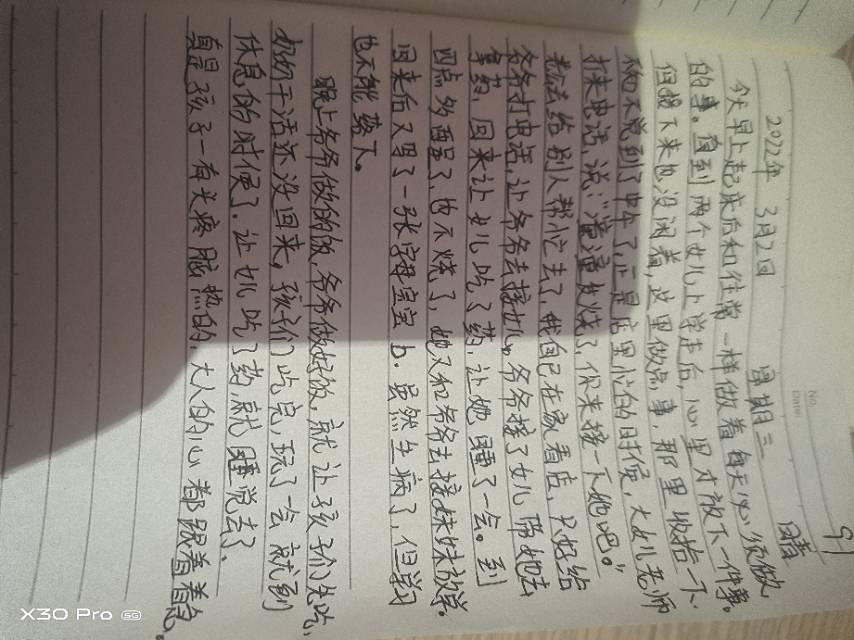 91
No.
Date
2022年 3月2日 星期三 晴
今天早上起床后和往常一样做着每天必须做
的事。直到两个女儿上学走后,心里才放下一件事。
但接下来也没闲着,这里做点事,那里收拾一下
不知不觉到了中午了,正是店里忙的时候,大女儿老师
打来电话,说:“潼潼发烧了,你来接一下她吧。”
去给别人帮忙去了,我自己在家看店,只好给
爷爷打电话,让爷爷去接女儿。爷爷接了女儿带她去
拿药,回来让女儿吃了药,让她睡了一会。到
四点多睡醒了,也不烧了,她又和爷爷去接妹妹放学。
回来后又写了一张字母宝宝b.虽然生病了,但学习
也不能落下。
晚上爷爷做的饭,爷爷做好饭,就让孩子们先吃,
奶奶干活还没回来,孩子们吃完,玩了一会就到
休息的时候了.让女儿吃了药,就睡觉去了.
真是孩子一有头疼脑热的,大人的心都跟着着急。
X30 Pro 5G